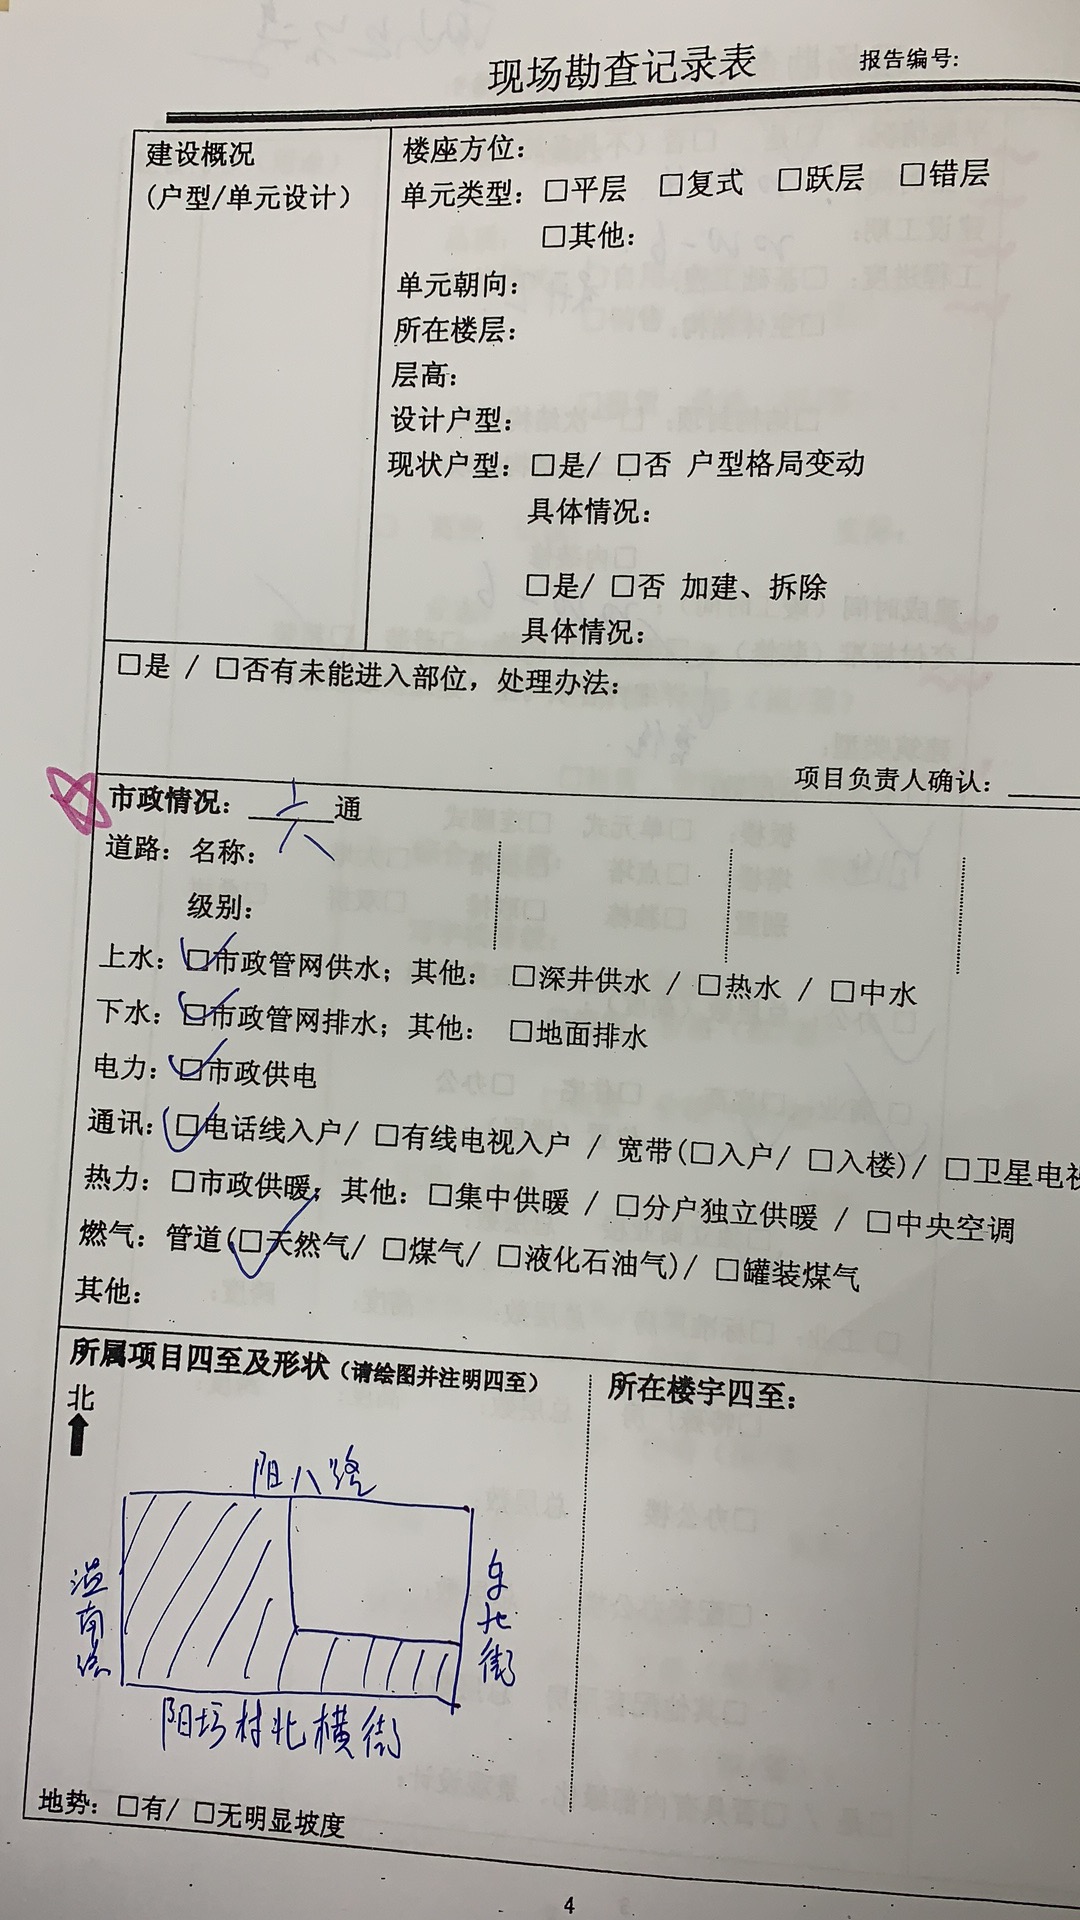 现场勘查记录表
报告编号:
建设概况
(户型/单元设计)
楼座方位:
单元类型: □平层 □复式 □跃层 □错层
□其他:
单元朝向:
所在楼层:
层高:
设计户型:
现状户型: □是/ □否 户型格局变动
具体情况:
□是/ □否 加建、拆除
具体情况:
□是 / □否有未能进入部位, 处理办法:
项目负责人确认:
市政情况: 六 通
道路: 名称:
级别:
上水: ☑市政管网供水; 其他: □深井供水 / □热水 / □中水
下水: ☑市政管网排水; 其他: □地面排水
电力: ☑市政供电
通讯: ☑电话线入户/ □有线电视入户 / 宽带(□入户/ □入楼)/ □卫星电视
热力: □市政供暖; 其他: □集中供暖 / □分户独立供暖 / □中央空调
燃气: 管道(☑天然气/ □煤气/ □液化石油气)/ □罐装煤气
其他:
所属项目四至及形状 (请绘图并注明四至)
所在楼宇四至:
北
阳八路
温南路
北街
阳坊村北横街
地势: □有/ □无明显坡度
4